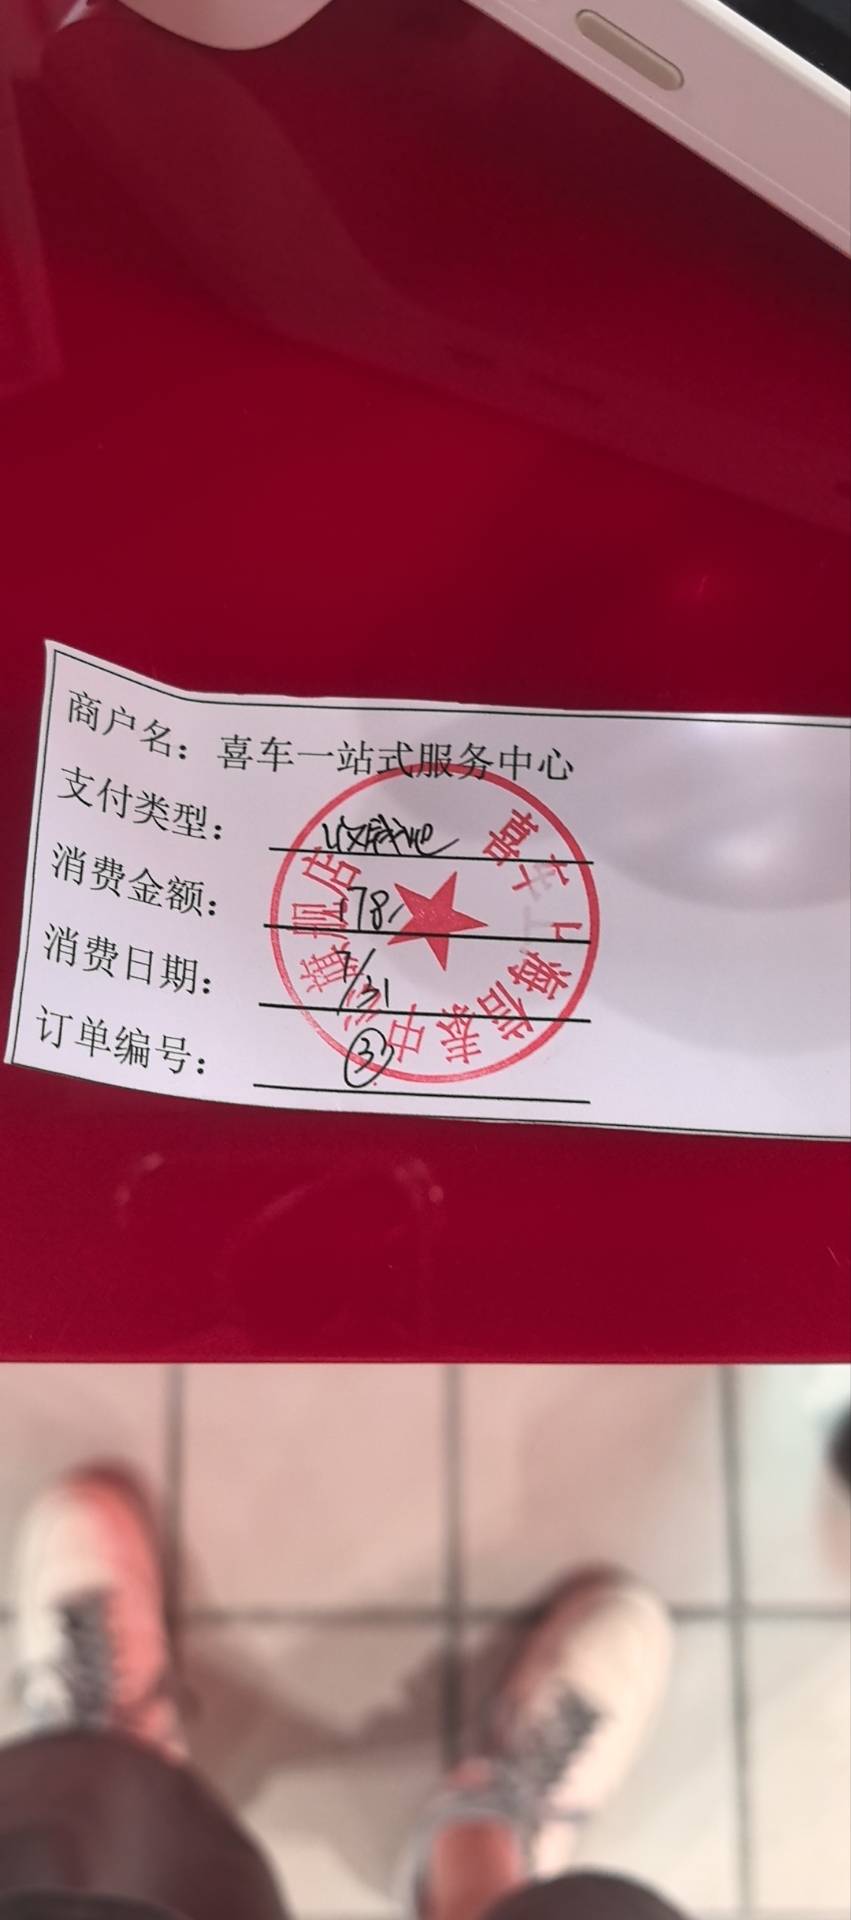 商户名：喜车一站式服务中心
支付类型：
消费金额：178/
消费日期：7/31
订单编号：③
喜车 上海
中心旗舰店